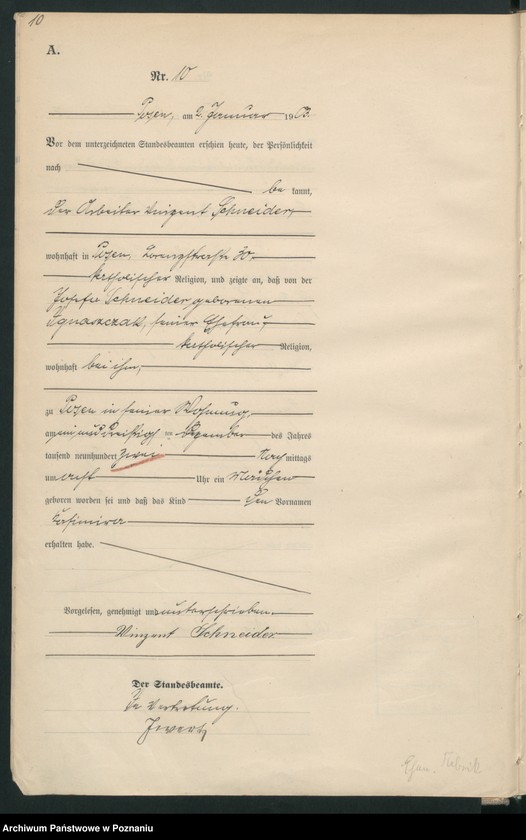 10
A.
Nr. 10
Posen, am 2. Januar 1903.
Vor dem unterzeichneten Standesbeamten erschien heute, der Persönlichkeit
nach
be kannt,
der Arbeiter Vinzent Schneider,
wohnhaft in Posen,  30,
katholischer Religion, und zeigte an, daß von der
Josefa Schneider geborenen
Ignaszczak, seiner Ehefrau,
katholischer Religion,
wohnhaft bei ihm,
zu Posen in seiner Wohnung,
am ein und dreißigsten Dezember des Jahres
tausend neunhundert zwei Nach mittags
um acht Uhr ein Mädchen
geboren worden sei und daß das Kind den Vornamen
Kasimira
erhalten habe.
Vorgelesen, genehmigt und unterschrieben.
Vinzent Schneider
Der Standesbeamte.
In Vertretung.
Archiwum Państwowe w Poznaniu